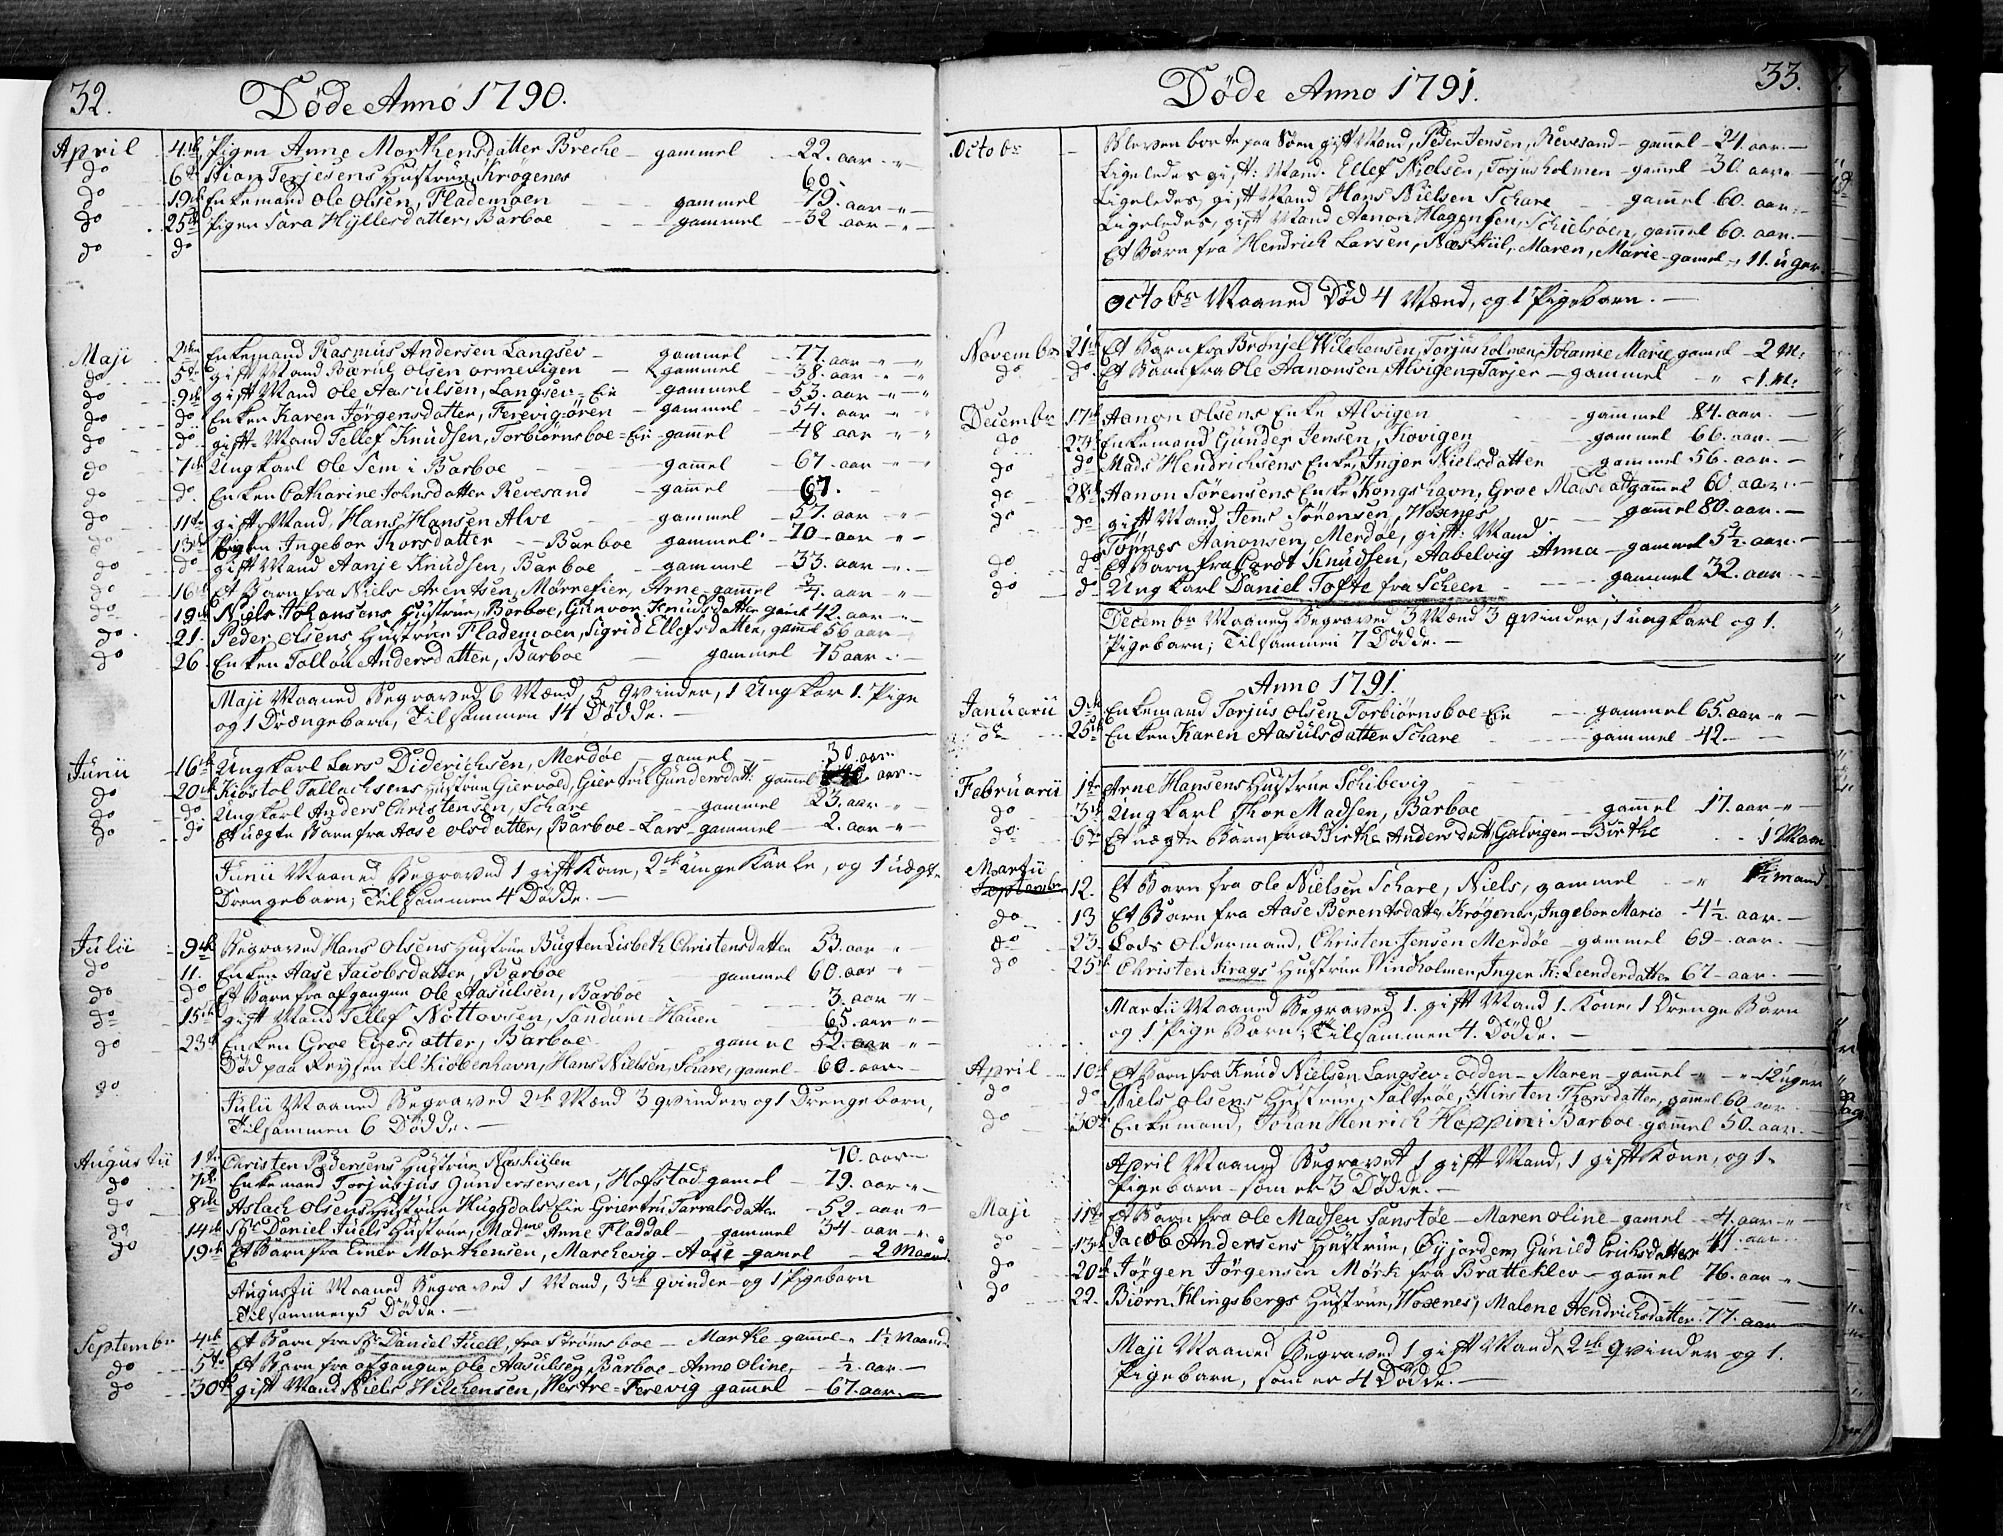 32.
Døde Anno 1790.
April 4de Pigen Anne Morthensdatter Breche - gammel - 22. aar -
do 6te Stian Terjesens Hustrue, Krøgenes 60.
do 19de Enkemand Ole Olsen, Flademoen gammel 79. aar -
do 25de Pigen Sara Hyllersdatter, Barboe gammel 32 aar -
do do
Maji 2den Enkemand Rasmus Andersen Langsev gammel 77. aar
do 5te gift Mand Bærul Olsen Ormevigen gammel 38. aar
do 9de gift Mand Ole Aasulsen, Langsev-Eie gammel 53. aar
do do Enken Karen Jørgensdatter, Ferevigøren gammel 54. aar
do do gift Mand Tellef Knudsen, Torbiørnsboe-Eie gammel 48 aar
do 7de Ungkarl Ole Sem i Barboe gammel 67. aar
do do Enken Catharine Johnsdatter Revesand gammel 67.
do 11te gift Mand, Hans Hansen Alve gammel 57. aar
do 13de Ingebor Thorsdatter Barboe gammel 70 aar
do do gift Mand Aanje Knudsen, Barboe gammel 33. aar
do 16de Et Barn fra Niels Arentsen, Mørrefier, Arne gammel 3/4. aar
do 19de Niels Johansens Hustrue, Barboe, Gunvor Knudsdatter gamel 42. aar
do 21. Peder Olsens Hustrue Flademoen, Sigrid Ellefsdatter, gamel 56 aar
do 26 Enken Tollou Andersdatter, Barboe gammel 75 aar
Maji Maaned Begraved 6 Mænd, 5 Qvinder, 1 Ungkar 1. Pige
og 1 Drængebarn, Tilsammen 14 Dødde.
Junii 16de Ungkarl Lars Diderichsen, Merdøe gamel 30 aar
do 20de Kiøstol Tallachsens Hustrue Giervold, Giertru Gundersdatt: gammel aar
do do Ungkarl Anders Christensen, Schare gammel 23. aar
do do Et uægte Barn fra Aase Olsdatter, Barboe - Lars - gammel 2. aar
Junii Maaned Begraved 1 gift Kone, 2de unge Karle, og 1 uægte
Drengebarn; Tilsammen 4 Dødde.
Julii 9de Begraved Hans Olsens Hustrue Bugten Lisbeth Christensdatter 53. aar
do 11. Enken Aase Jacobsdatter, Barboe gammel 60. aar
do do Et Barn fra afgangne Ole Aasulsen, Barboe 3. aar
do 15de gift Mand Tellef Nottovsen, Sandum-Hauen 65. aar
do 23de Enken Groe Egesdatter, Barboe gamel 52. aar
do Død paa Reysen til Kiobenhavn, Hans Nielsen, Schare, gamel 60. aar
Julii Maaned Begraved 2de Mænd 3 qvinder og 1 Drengebarn,
Tilsammen 6 Dødde.
Augustii 1te Christen Pedersens Hustrue Naskiilen 70. aar
do 7de Enkemand Torjusjus Gundersersen, Hofstad gamel 79. aar
do 8de Aslach Olsens Hustrue Huggdals Eie Griertru Tarvalsdatter 52 aar
do 14de Sr. Daniel Juels Hustrue, Madme Anne Fladdal gammel 34 aar
do 19de Et Barn fra Einer Morthensen, Marchevig - Aase - gamel 2 Maaned
Augustii Maaned Begraved 1 Mand, 3de qvinder og 1 Pigebarn
Tilsammen 5 Dødde.
September 4de Et Barn fra Sr. Daniel Juell, fra Strømsboe - Marthe gamel 1½ Maaned
do 5te Et Barn fra afgangne Ole Aasulsen, Barboe - Anne Oline ½ aar
do 30te gift Mand Niels Wilchensen, Vestre-Ferevig gammel 67. aar
33.
Døde Anno 1791.
Octobr Bleven borte paa Søen gift Mand, Peder Jensen, Revesand - gamel 24. aar
Ligeledes gift: Mand. Ellef Nielsen, Torjusholmen - gamel 30. aar
Ligeledes, gift Mand Hans Nielsen Schare gamel 60. aar
Ligeledes, gift Mand Aanon Hagensen, Schielsøen, gammel 60. aar.
Et Barn fra Hendrich Larsen, Næskiil, Maren, Marie gamel 11. uger
Octobr Maaned Død 4 Mænd, og 1 Pigebarn.
Novembr 21de Et Barn fra Brønjel Wilchensen, Torjusholmen, Johanne Marie gamel 2 M:
do do Et Barn fra Ole Aanonsen Alvigen, Tarjer gammel 1. M:
Decembr 17de Aanon Olsens Enke Alvigen gammel 84. aar.
do 23de Enkemand Gunder Jensen, Kiovigen gammel 66. aar.
do do Mads Hendrichsens Enke, Inger Nielsdatter gammel 56. aar.
do 28de Aanon Sørensens Enke Kongshavn, Groe Madsdatt gammel 60 aar.
do do gift Mand, Jens Sørensen, Woxnes gammel 80. aar.
Tønnes Aanonsen, Merdøe, gift: Mand
do do Et Barn fra Cordt Knudsen, Aabelvig Anna - gammel 5½. aar.
do do Ungkarl Daniel Tofte fra Scheen gammel 32. aar
Decembr Maaned Begraved 3 Mænd 3 qvinder, 1 ungkarl og 1.
Pigebarn; Tilsammen 7 Dødde.
Anno 1791.
Januarii 9de Enkemand Torjus Olsen Torbiørnsboe-Eie gammel 65. aar
do 25de Enken Karen Aasulsdatter Schare gammel 42.
Februarii 1te Arne Hansens Hustrue Schibevig
do 3de Ungkarl Thor Madsen, Barboe gammel 17. aar
do 6te Et uægte Barn fra Birthe Andersdatt, Galvigen - Birthe 1 Maan
Martii
Septembr 12. Et Barn fra Ole Nielsen Schare, Niels, gammel maaned
do 13 Et Barn fra Aase Berentsdatter, Krøgenes, Ingebor Marie 4½. aar.
do 23. Lods Oldermand, Christen Jensen Merdøe - gammel 69. aar.
do 25de Christen Krags Hustrue Windholmen, Inger K: Leendersdatter 67. aar.
Martii Maaned Begraved 1. gift Mand 1. Kone, 1 Drenge Barn
og 1 Pige Barn; Tilsammen 4. Dødde.
April 10de Et Barn fra Knud Nielsen Langsev-Odden - Maren - gammel 12 uger
do do Niels Olsens Hustrue, Saltrøe, Kirsten Thorsdatter, gamel 60 aar
do 30te Enkemand, Johan Henrich Hoppin i Barboe gammel 50. aar
April Maaned Begravet 1 gift Mand, 1 gift Kone, og 1.
Pigebarn som er 3 Dødde.
Maji 11te Et Barn fra Ole Madsen Sanstøe - Maren Oline - gamel 4. aar
do 13de Jacob Andersens Hustrue, Øyjordem, Gunild Erichsdatter 44. aar
do 20de Jørgen Jørgensen Mørk fra Bratteklev gammel 76. aar
do 22. Biørn Klingsbergs Hustrue, Woxenes, Malene Hendrichsdatter 77. aar
Maji Maaned Begraved 1 gift Mand 2de qvinder og 1.
Pigebarn, som er 4 Dødde.